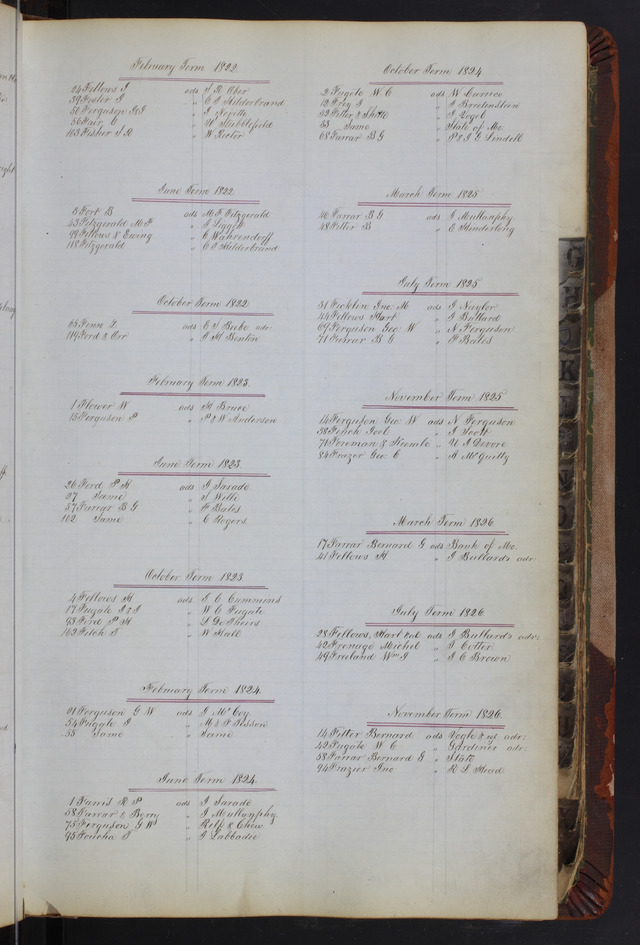 February Term 1822
24 Fellows J ads J R Ober
39 Foster J " C S Hilderbrand
50 Ferguson " J Neville
56 Fair C " M Stubblefield
103 Fisher J R " W Rector
June Term 1822.
5 Fort B ads M F Fitzgerald
43 Fitzgerald M F " J Liggett
99 Fellows & Ewing " C Wahrendorff
118 Fitzgerald " C S Hilderbrand
October Term 1822
65 Fenn Z ads E S Beebe adr:
119 Ford & Orr " T H Benton
February Term 1823.
1 Flower W ads H Bruce
15 Ferguson P " P & W Anderson
June Term 1823.
26 Ford P H ads J Sarade
27 Same " S Wille
57 Farrar B G " F Bates
102 Same " C Rogers
October Term 1823
4 Fellows H ads J C Cummins
17 Fugate J & J " W C Fugate
93 Ford P H " L
162 Fitch T " W Hall
February Term 1824.
21 Ferguson G W ads J McCoy
54 Fugate J " M & F Sisson
55 Same " Same
June Term 1824.
1 Farris R P ads J Sarade
58 Farrar & Berry " J Mullanphy
75 Ferguson G W " Relf & Chew
95 Foucha J " J Labbadie
October Term 1824
2 Fugate W C ads W Carrico
12 Frey J " J Breetenstein
32 Fitter & " J Vogel
33 Same " State of Mo.
68 Farrar B G " P & J G Lindell
March Term 1825
40 Farrar B G ads J Mullanphy
48 Fitter B " E Slenderling
July Term 1825
31 Ficklin Jno M ads J Naylor
44 Fellows Hart " J Bullard
69 Ferguson Geo W " N Ferguson
71 Farrar B G " F Bates
November Term 1825
14 Ferguson Geo W ads N Ferguson
58 French Joel " J Scott
71 Foreman & " U J Devore
84 Frazer Geo C " A McGuilty
March Term 1826.
17 Farrar Bernard G ads Bank of Mo.
41 Fellows H " J Bullards adr:
July Term 1826.
28 Fellows, Hart et al ads J Bullard's adr:
42 Fronage Michel " J Cotter
49 Freeland Wm J " J C Brown
November Term 1826.
14 Fitter Bernard ads Vogle & al adr:
42 Fugate W C " Gardiner adr:
58 Farrar Bernard G " State
94 Frazier Jno " R L Head
G
H
J
K